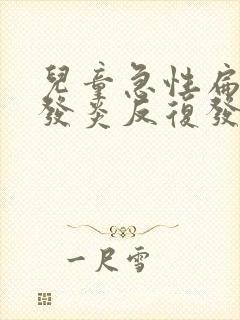 兒童急性扁
發炎反復發
一尺雪